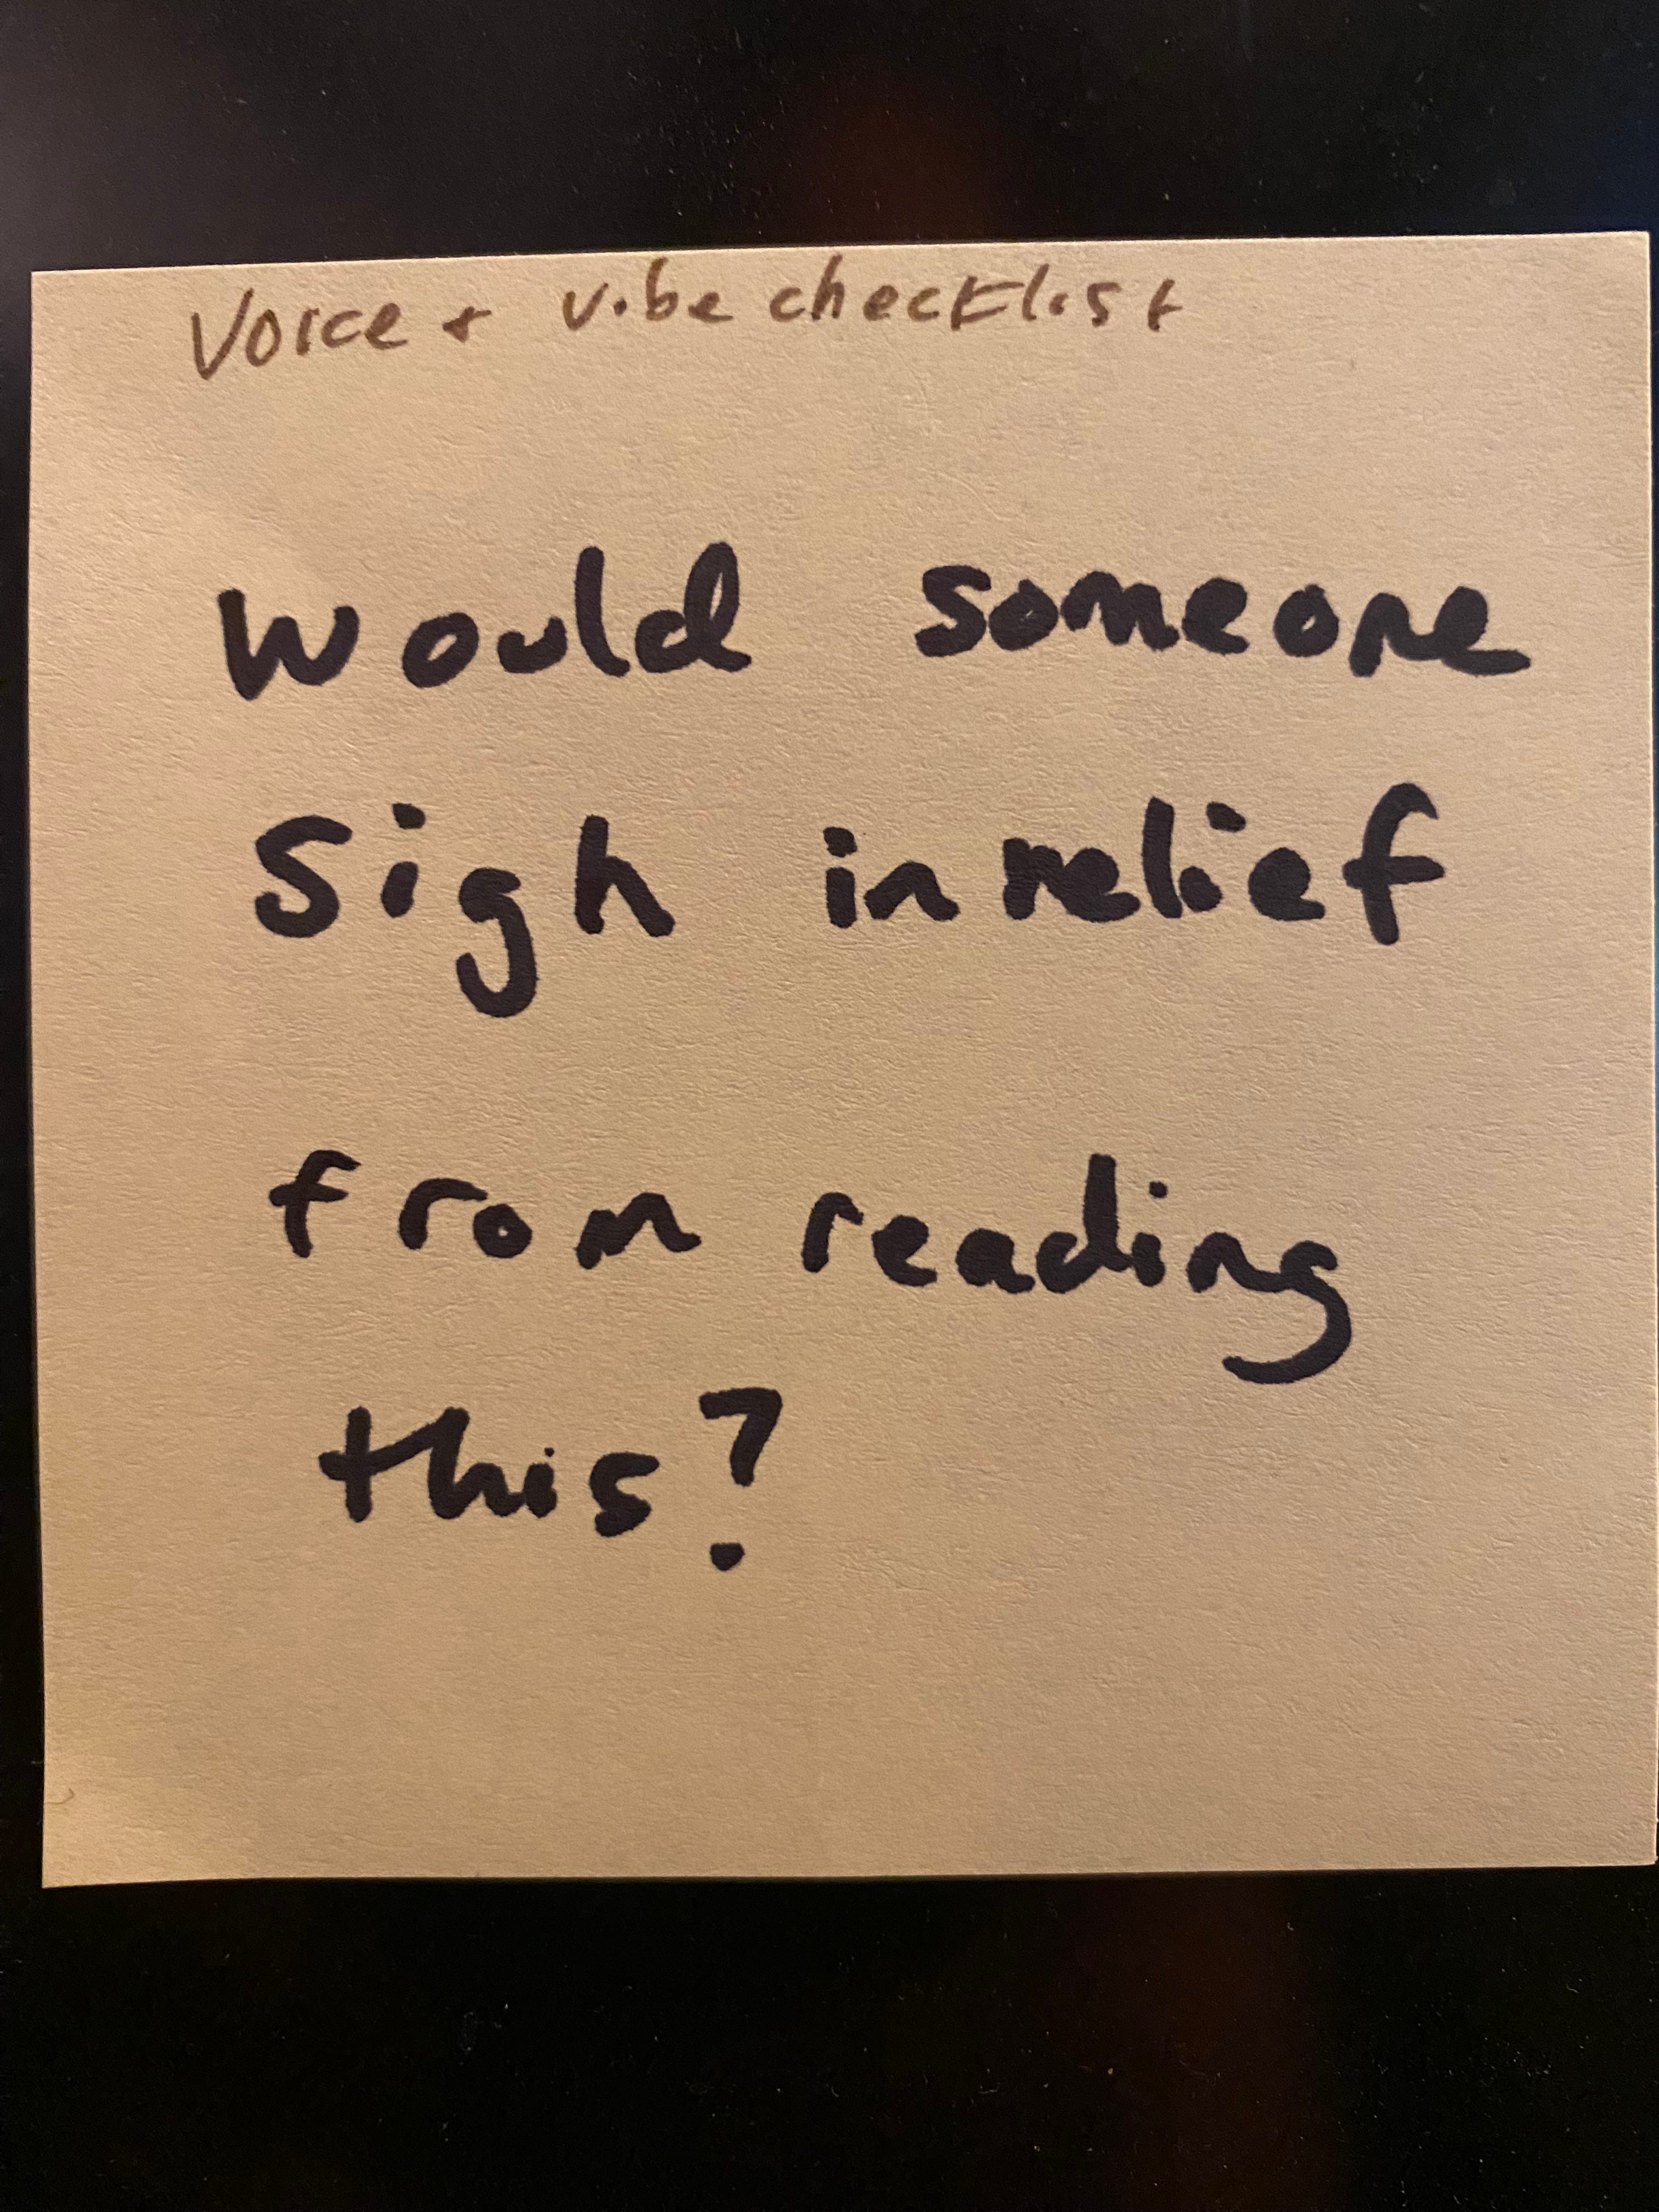 Voice + vibe checklist
Would someone
Sigh in relief
from reading
this?